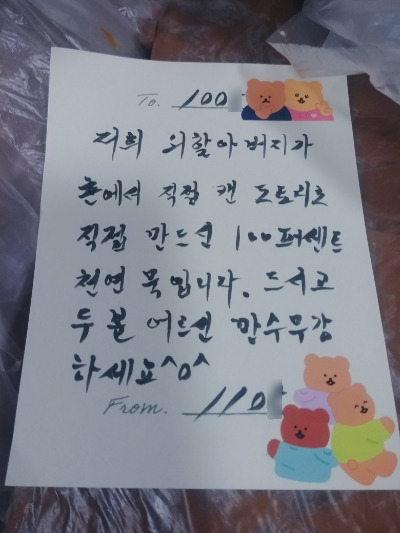 To. 100
저희 외할아버지가
촌에서 직접 캔 도토리로
직접 만드신 100퍼센트
천연 묵입니다. 드시고
두 분 어르신 만수무강
하세요^0^
From. 110